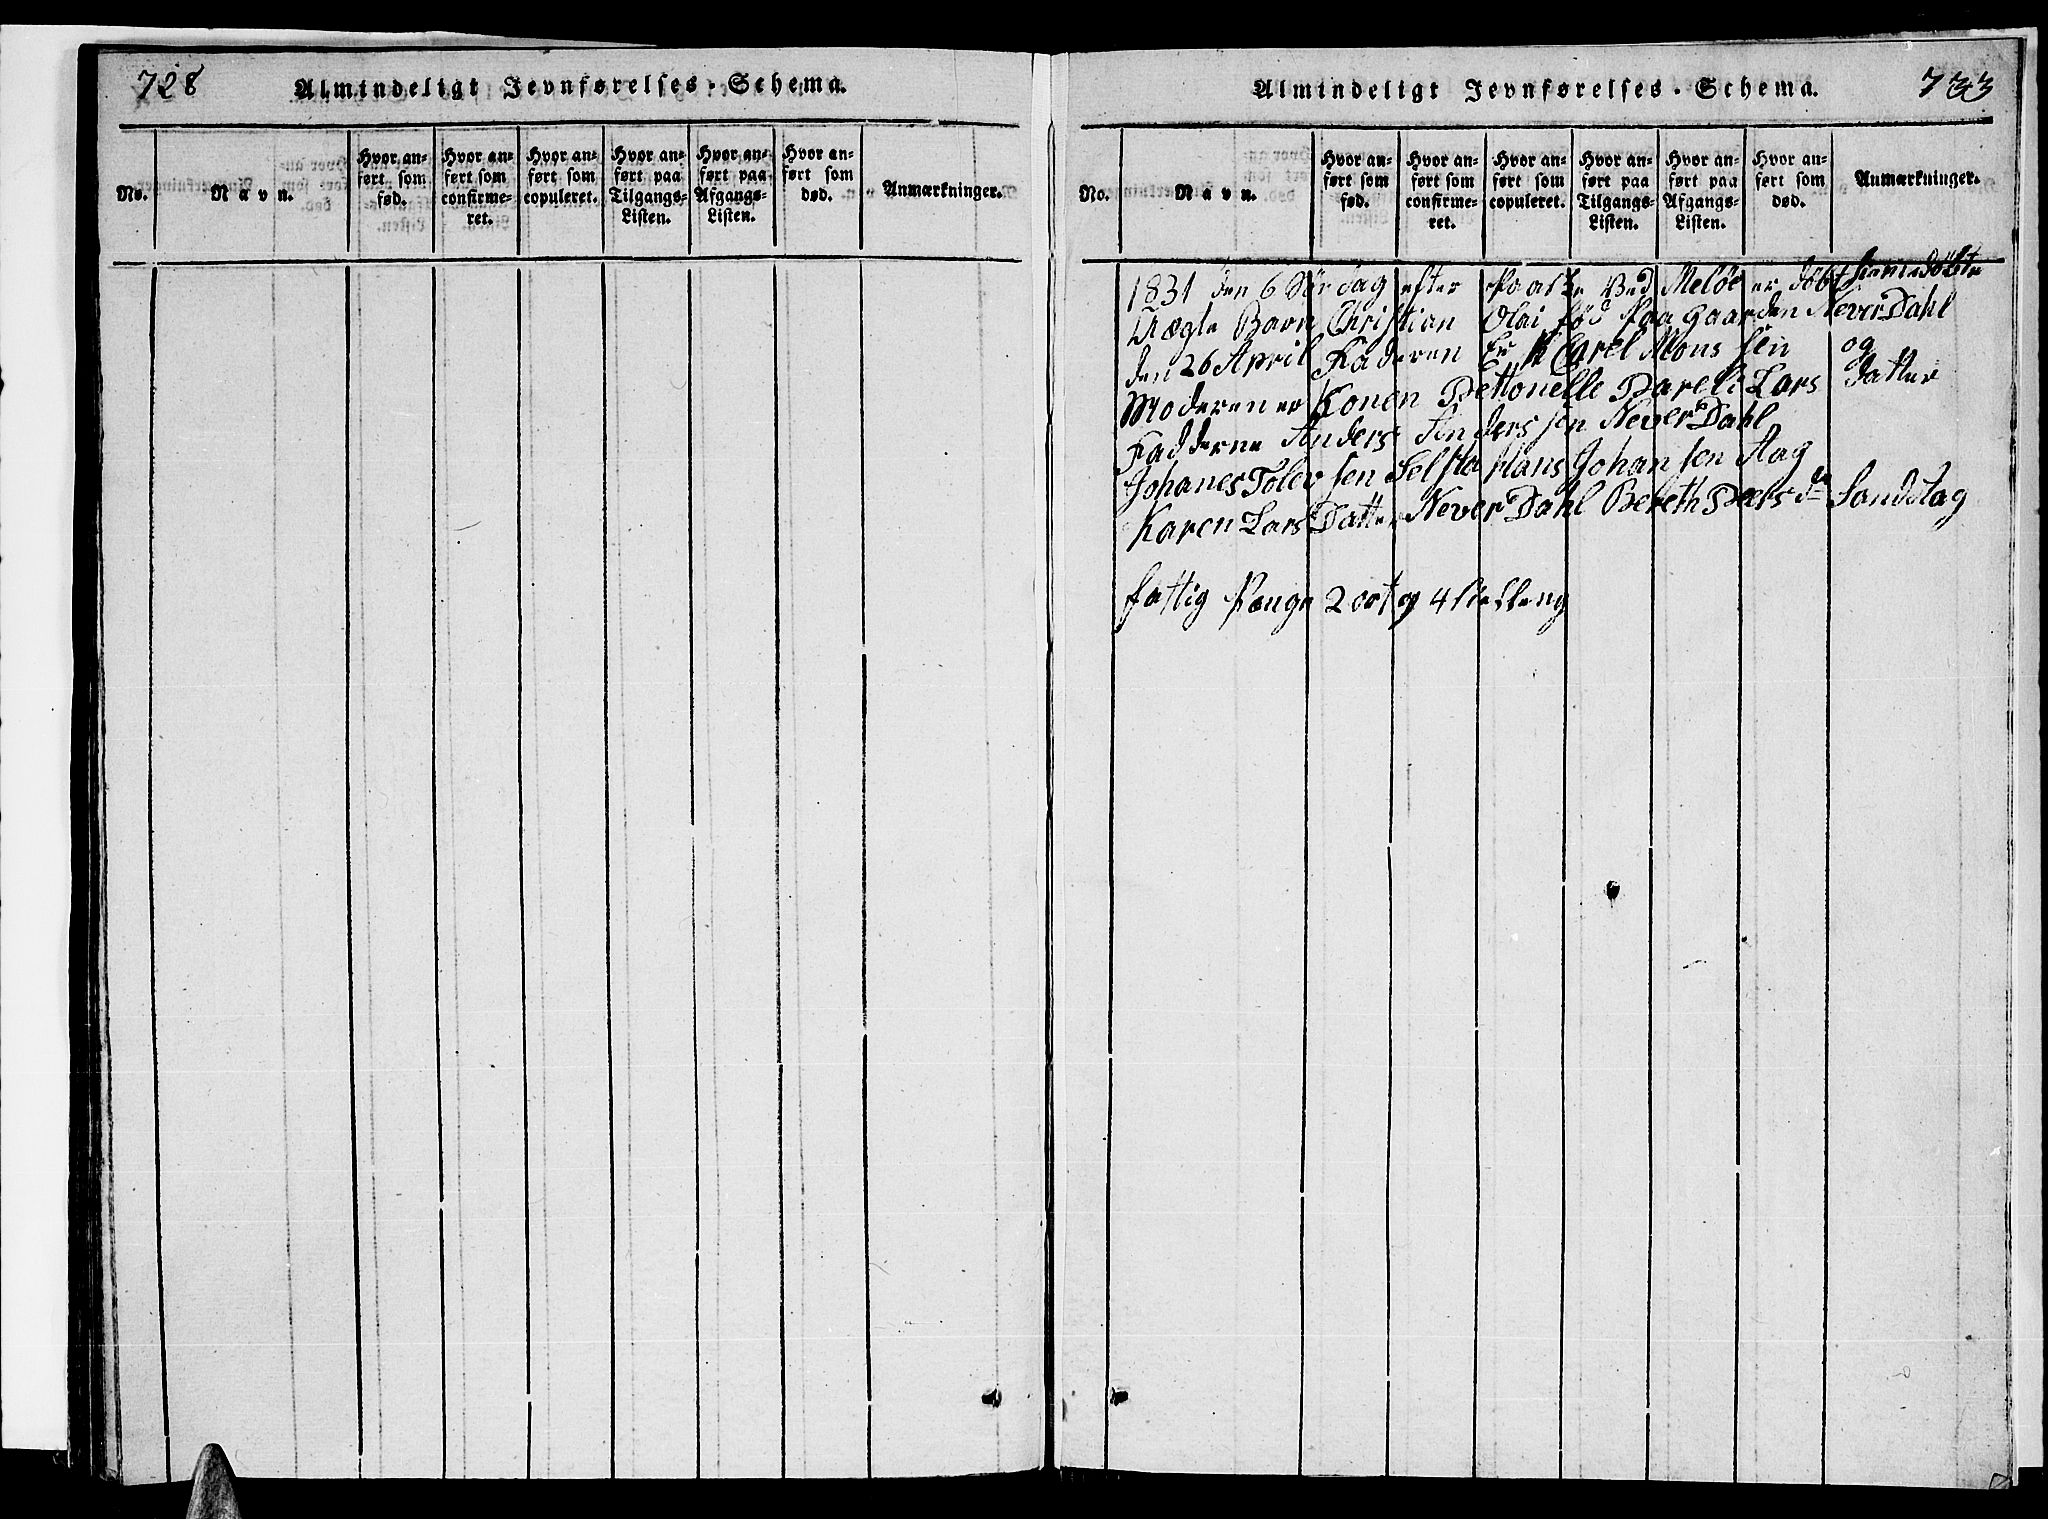 728
Almindeligt Jevnførelses-Schema.
No.
Navn.
Hvor an-
ført som
fød.
Hvor an-
ført som
confirme-
ret.
Hvor an-
ført som
copuleret.
Hvor an-
ført paa
Tilgangs-
Listen.
Hvor an-
ført paa
Afgangs-
Listen.
Hvor an-
ført som
død.
Anmærkninger.
Almindeligt Jevnførelses-Schema.
733
No.
Navn.
Hvor an-
ført som
fød.
Hvor an-
ført som
confirme-
ret.
Hvor an-
ført som
copuleret.
Hvor an-
ført paa
Tilgangs-
Listen.
Hvor an-
ført paa
Afgangs-
Listen.
Hvor an-
ført som
død.
Anmærkninger.
1831 den 6 Sørdag efter Paaske Ved Meløe er døbt
Ægte Barn Christian Olai fød paa gaarden NeverDahl
den 26 April Faderen Er Carel Monssen og
Moderen er Konen Pettonelle Lars datter
Fadderne Anders Anderssen NeverDahl
Johanes Tolevsen Selsta Hans Johansen Aag
Karen LarsDatter NeverDahl Bereth Peers dr Sandstag
fattig Penge 2 ort og 4